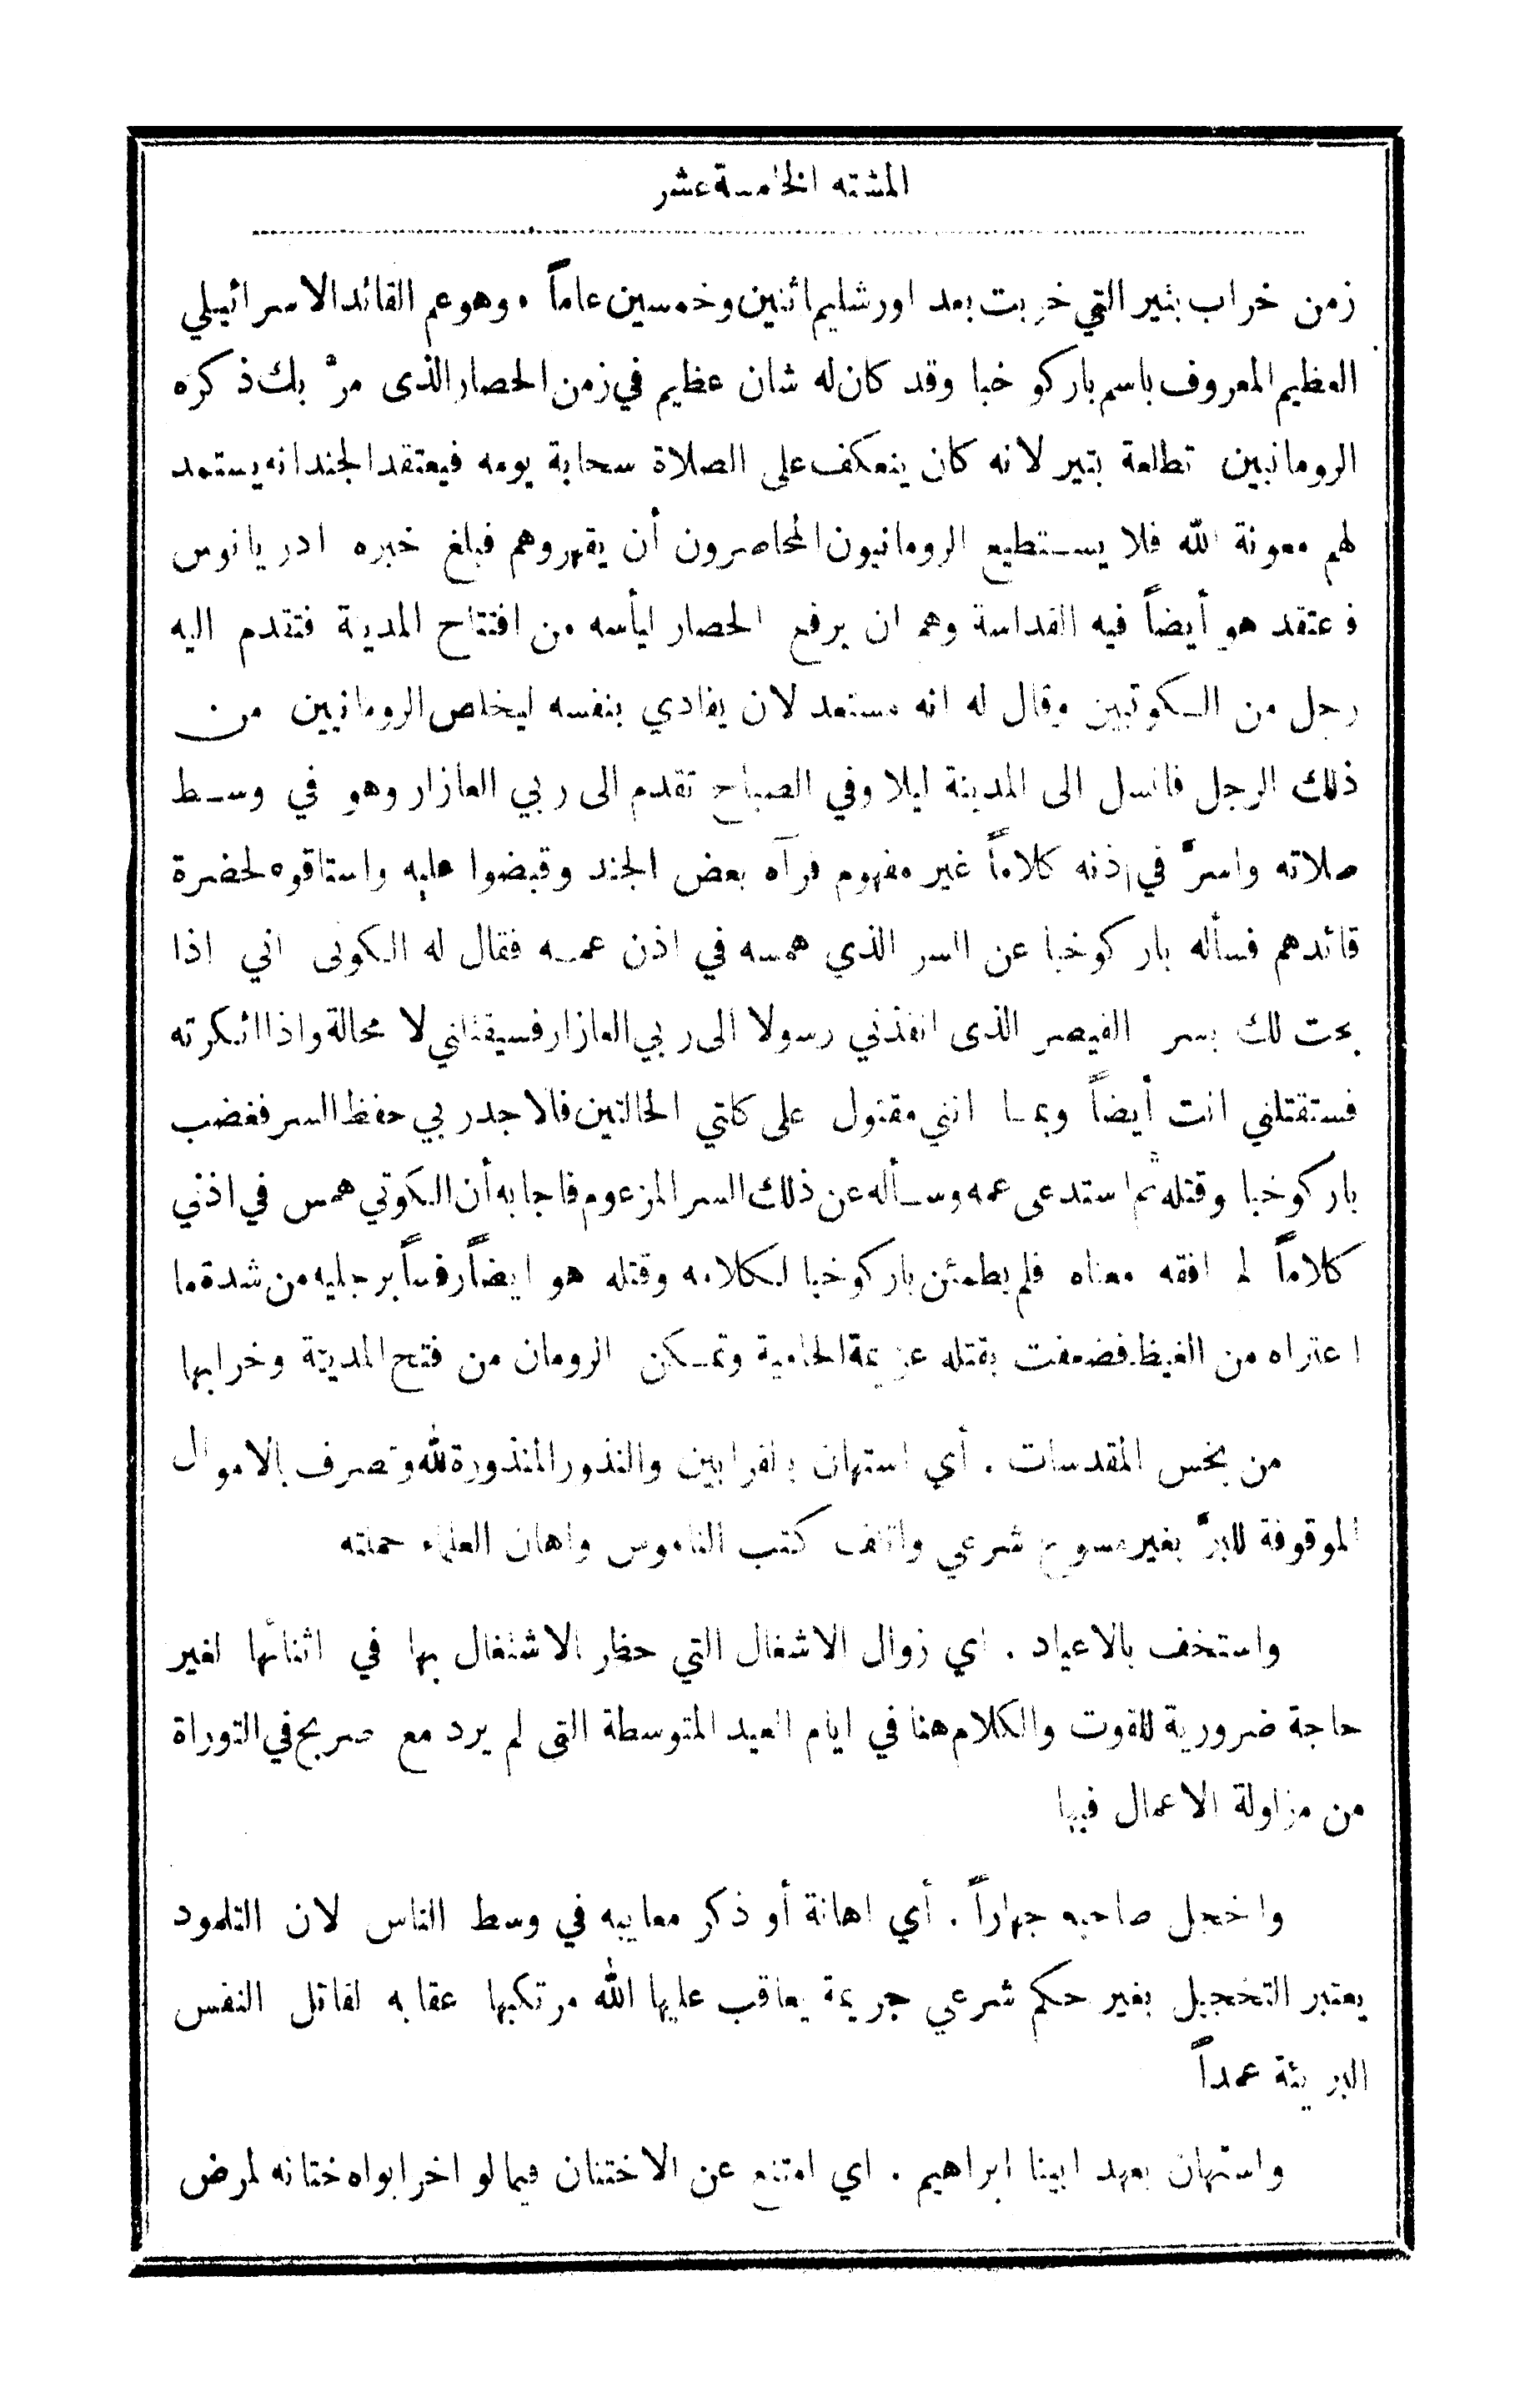 المشنه الخامسة عشر
زمن خراب بثير التي خربت بعد اورشليم اثنين وخمسين عاماً . وهو عم القائد الاسرائيلي
العظيم المعروف باسم باركو خبا وقد كان له شان عظيم في زمن الحصار الذى مرّ بك ذكره
الرومانيين تطلعة بتير لانه كان ينعكف على الصلاة سحابة يومه فيعتقد الجند انه يستمد
لهم معونة الله فلا يستطيع الرومانيون المحاصرون أن يقهروهم فبلغ خبره ادريانوس
فاعتقد هو أيضاً فيه القداسة وهم ان يرفع الحصار ليأسه من افتتاح المدينة فتقدم اليه
رجل من الكوتيين وقال له انه مستعد لان يفادي بنفسه ليخلص الرومانيين من
ذلك الرجل فانسل الى المدينة ليلا وفي الصباح تقدم الى ربي العازار وهو في وسط
صلاته واسرّ في اذنه كلاماً غير مفهوم فرآه بعض الجند وقبضوا عليه واستاقوه لحضرة
قائدهم فسأله باركوخبا عن السر الذي همسه في اذن عمه فقال له الكوتى اني اذا
بحت لك بسر القيصر الذى انفذني رسولا الى ربي العازار فسيقتلني لا محالة واذا انكرته
فستقتلني انت أيضاً وبما انني مقتول على كلتي الحالتين فالاجدر بي حفظ السر فغضب
باركوخبا وقتله ثم استدعى عمه وسأله عن ذلك السر المزعوم فاجابه أن الكوتي همس في اذني
كلاماً لم افقه معناه فلم يطمئن باركوخبا لكلامه وقتله هو ايضاً رفساً برجليه من شدة ما
اعتراه من الغيظ فضعفت بقتله عزيمة الحامية وتمكن الرومان من فتح المدينة وخرابها
من بخس المقدسات . أي استهان بالقرابين والنذور المنذورة لله وتصرف بالاموال
الموقوفة للبرّ بغير مسوغ شرعي واتلف كتب الناموس واهان العلماء حملته
واستخف بالاعياد . اي زوال الاشغال التي حظر الاشتغال بها في اثنائها لغير
حاجة ضرورية للقوت والكلام هنا في ايام العيد المتوسطة التى لم يرد مع صريح في التوراة
من مزاولة الاعمال فيها
واخجل صاحبه جهاراً . أي اهانة أو ذكر معايبه في وسط الناس لان التلمود
يعتبر التخجيل بغير حكم شرعي جريمة يعاقب عليها الله مرتكبها عقابه لقاتل النفس
البريئة عمداً
واستهان بعهد ابينا ابراهيم . اي امتنع عن الاختتان فيما لو اخر ابواه ختانه لمرض